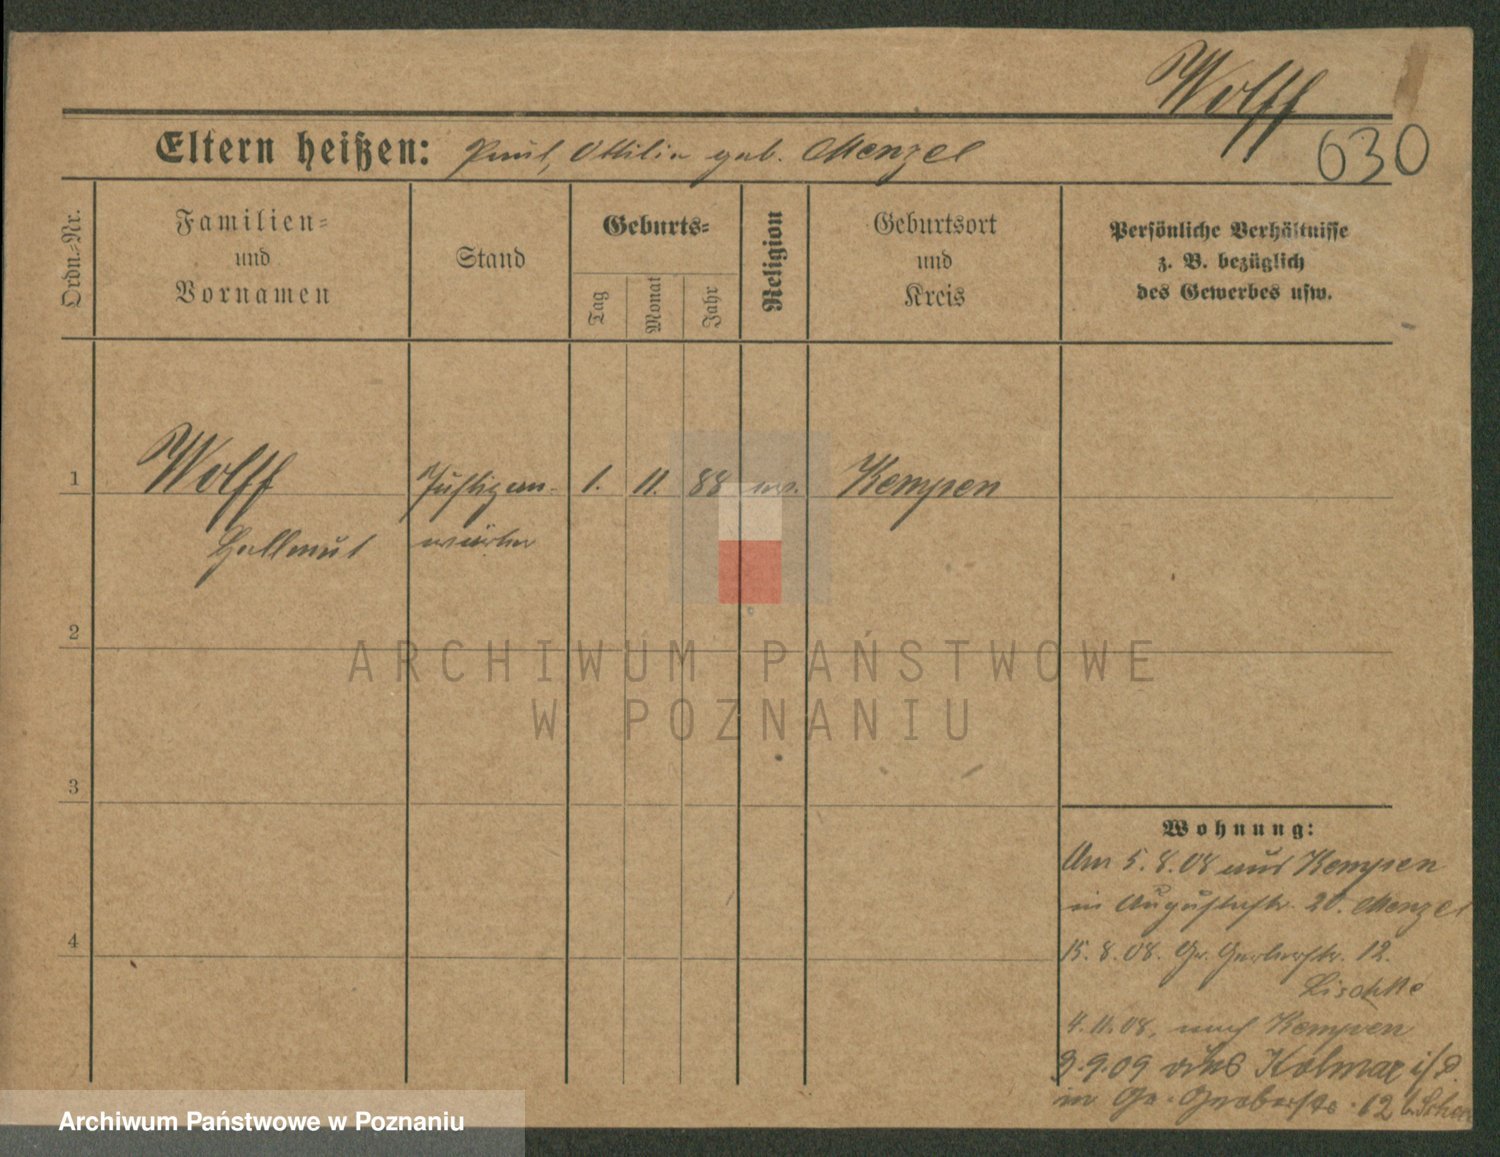 Wolff
630
Eltern heißen: Paul, Ottilie geb. Menzel
Ordn.-Nr.
Familien-
und
Vornamen
Stand
Geburts-
Tag
Monat
Jahr
Religion
Geburtsort
und
Kreis
Persönliche Verhältnisse
z. B. bezüglich
des Gewerbes usw.
1
Wolff
Hellmut
Justizan-
wärter
1. 11. 88
ev.
Kempen
2
ARCHIWUM PAŃSTWOWE
W POZNANIU
3
4
Wohnung:
Am 5.8.08 aus Kempen
in Augustastr. 20. Menzel
15.8.08. Gr. Gerberstr. 12.
4.11.08, nach Kempen
9.09 aus Kolmar i/P.
in Gr. Gerberstr. 12
Archiwum Państwowe w Poznaniu